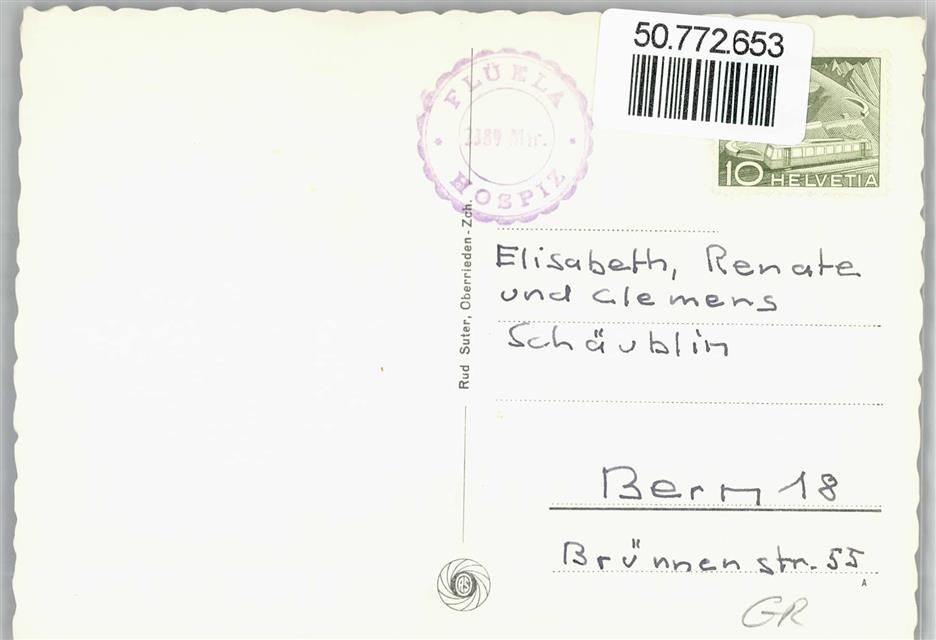 50.772.653
FLÜELA
2389 Mtr.
HOSPIZ
10 HELVETIA
Rud Suter, Oberrieden - Zch.
Elisabeth, Renate
und Clemens
Schäublin
Bern 18
Brünnenstr. 55
A
RS
GR